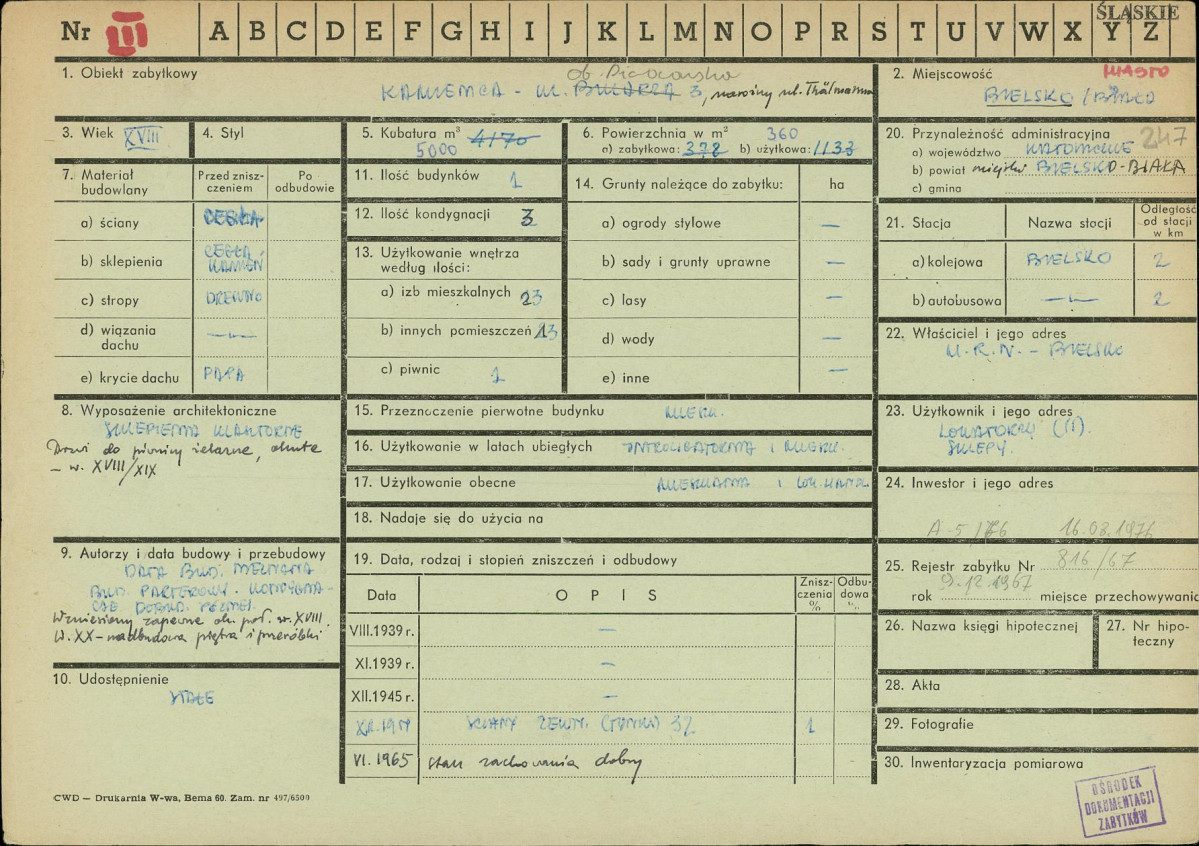 Nr III A B C D E F G H I J K L M N O P R S T U V W X Y Z ŚLĄSKIE
1. Obiekt zabytkowy
KAMIENICA - ul. 3, narożny ul. Thälmanna
2. Miejscowość MIASTO
BIELSKO / BIAŁA
3. Wiek XVIII
4. Styl
5. Kubatura m³ 4170
5000
6. Powierzchnia w m² 360
a) zabytkowa: 372 b) użytkowa: 1133
20. Przynależność administracyjna 247
a) województwo KATOWICKIE
b) powiat miejski BIELSKO-BIAŁA
c) gmina
7. Materiał budowlany
Przed znisz-
czeniem
Po
odbudowie
a) ściany CEGŁA
b) sklepienia CEGŁA,
KAMIEŃ
c) stropy DREWNO
d) wiązania
dachu —„—
e) krycie dachu PAPA
11. Ilość budynków 1
12. Ilość kondygnacji 3
13. Użytkowanie wnętrza
według ilości:
a) izb mieszkalnych 23
b) innych pomieszczeń 13
c) piwnic 1
14. Grunty należące do zabytku: ha
a) ogrody stylowe —
b) sady i grunty uprawne —
c) lasy —
d) wody —
e) inne —
21. Stacja
Nazwa stacji
Odległość
od stacji
w km
a) kolejowa BIELSKO 2
b) autobusowa —„— 2
22. Właściciel i jego adres
M.R.N. - BIELSKO
8. Wyposażenie architektoniczne
SKLEPIENIA KLASZTORNE
Drzwi do piwnicy żelazne, okute
- w. XVIII/XIX
15. Przeznaczenie pierwotne budynku MIESZK.
16. Użytkowanie w latach ubiegłych INTROLIGATORNIA I MIESZK.
17. Użytkowanie obecne MIESZKANIA I LOK. HANDL.
18. Nadaje się do użycia na
23. Użytkownik i jego adres
LOKATORZY (11).
SKLEPY.
24. Inwestor i jego adres
A-5/76 16.08.1976
9. Autorzy i data budowy i przebudowy
DATA BUD. NIEZNANA
BUD. PARTEROWY. KONDYGNA-
CJE DOBUD. PÓŹNIEJ.
Wzniesiony zapewne ok. poł. w. XVIII.
W. XX - nadbudowa piętra i przeróbki
19. Data, rodzaj i stopień zniszczeń i odbudowy
Data
O P I S
Znisz-
czenia
%
Odbu-
dowa
%
VIII.1939 r. —
XI.1939 r. —
XII.1945 r. —
ŚCIANY ZEWN. (TYNKI) 3% 1
VI. 1965 stan zachowania dobry
25. Rejestr zabytku Nr 816/67
rok 9.12.1967 miejsce przechowywania
26. Nazwa księgi hipotecznej
27. Nr hipo-
teczny
10. Udostępnienie
STAŁE
28. Akta
29. Fotografie
30. Inwentaryzacja pomiarowa
CWD — Drukarnia W-wa, Bema 60. Zam. nr 497/6500
OŚRODEK
DOKUMENTACJI
ZABYTKÓW